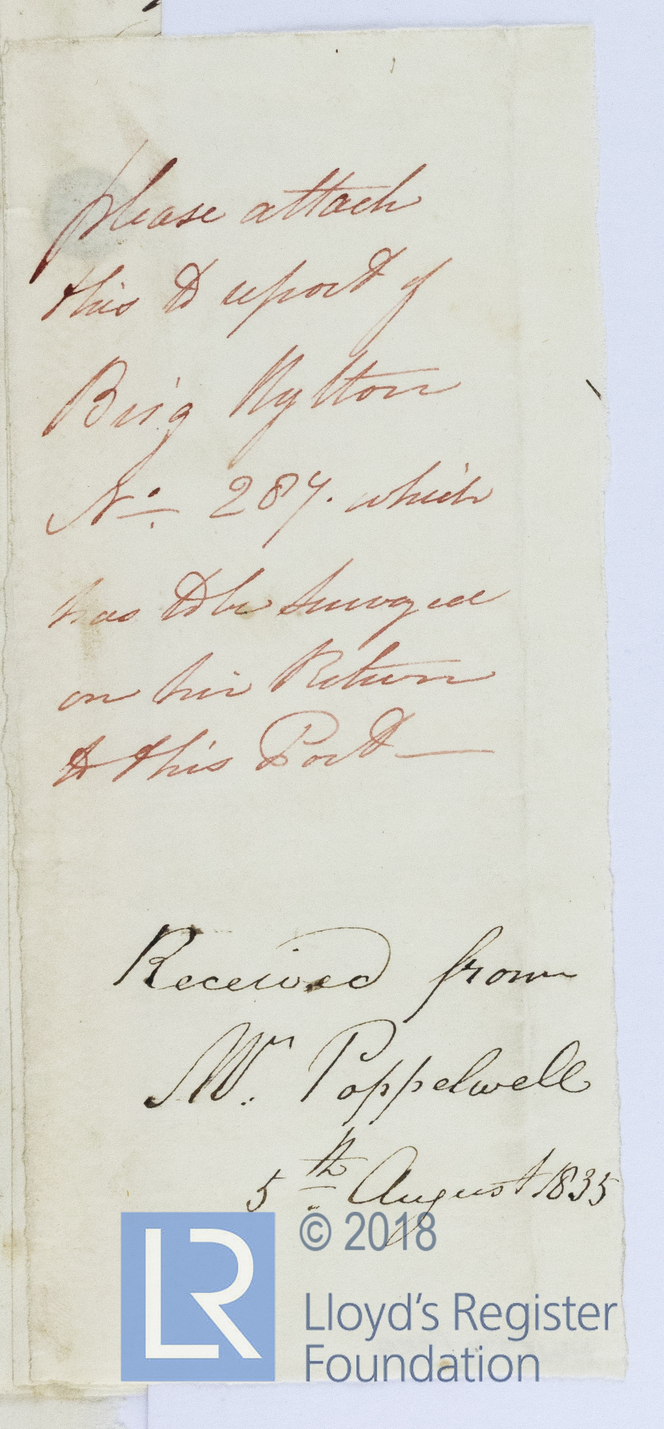 please attach
this to report of
Brig Hylton
No. 287. which
has to be surveyed
on her Return
to this Port
Received from
Mr. Poppelwell
5th August 1835
© 2018
LR
Lloyd's Register
Foundation